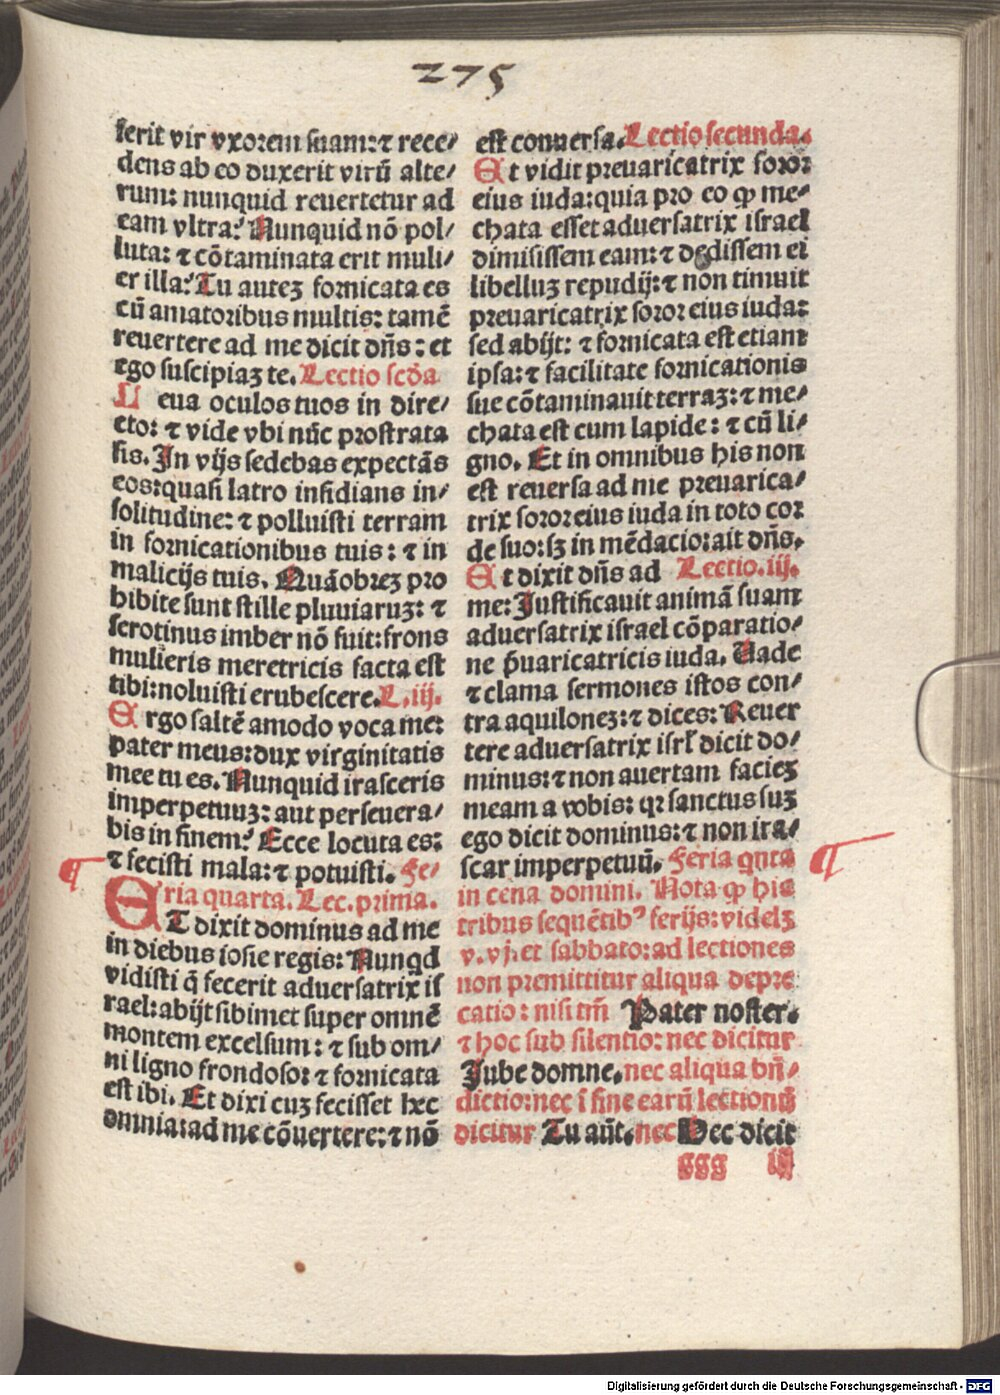 275
ferit vir vxorem suam: ⁊ rece/
dens ab eo duxerit virū alte/
rum: nunquid reuertetur ad
eam vltra? Nunquid nō pol/
luta: ⁊ cōtaminata erit muli/
er illa? Tu autez fornicata es
cū amatoribus multis: tamē
reuertere ad me dicit dn̄s: et
ego suscipiaz te. Lectio scd̄a
Leua oculos tuos in dire/
cto: ⁊ vide vbi nūc prostrata
sis. In vijs sedebas expectās
eos: quasi latro insidians in/
solitudine: ⁊ polluisti terram
in fornicationibus tuis: ⁊ in
malicijs tuis. Quāobrez pro
hibite sunt stille pluuiaruz: ⁊
serotinus imber nō fuit: frons
mulieris meretricis facta est
tibi: noluisti erubescere. L. iij.
Ergo saltē amodo voca me:
pater meus: dux virginitatis
mee tu es. Nunquid irasceris
imperpetuuz: aut perseuera/
bis in finem? Ecce locuta es:
⁊ fecisti mala: ⁊ potuisti. Fe/
ria quarta. Lec. prima.
ET dixit dominus ad me
in diebus iosie regis: Nunqd
vidisti q̄ fecerit aduersatrix is
rael: abijt sibimet super omnē
montem excelsum: ⁊ sub om/
ni ligno frondoso: ⁊ fornicata
est ibi. Et dixi cuz fecisset hec
omnia: ad me cōuertere: ⁊ nō
est conuersa. Lectio secunda.
Et vidit preuaricatrix soror
eius iuda: quia pro eo ꝙ me-
chata esset aduersatrix israel
dimisissem eam: ⁊ dedissem ei
libelluz repudij: ⁊ non timuit
preuaricatrix soror eius iuda:
sed abijt: ⁊ fornicata est etiam
ipsa: ⁊ facilitate fornicationis
sue cōtaminauit terraz: ⁊ me/
chata est cum lapide: ⁊ cū li/
gno. Et in omnibus his non
est reuersa ad me preuarica/
trix soror eius iuda in toto cor
de suo: sz in mēdacio: ait dn̄s.
Et dixit dn̄s ad Lectio. iij.
me: Justificauit animā suam
aduersatrix israel cōparatio/
ne p̄uaricatricis iuda. Uade
⁊ clama sermones istos con/
tra aquilonez: ⁊ dices: Reuer
tere aduersatrix isrl̄ dicit do/
minus: ⁊ non auertam faciez
meam a vobis: qr sanctus suz
ego dicit dominus: ⁊ non ira/
scar imperpetuū. Feria qnta
in cena domini. Nota ꝙ his
tribus sequētibꝰ ferijs: videlz
v. vj. et sabbato: ad lectiones
non premittitur aliqua depre
catio: nisi tm̄ Pater noster.
⁊ hoc sub silentio: nec dicitur
Jube domne. nec aliqua bn̄/
dictio: nec ī fine earū lectionū
dicitur Tu aūt. nec Hec dicit
ggg iij
Digitalisierung gefördert durch die Deutsche Forschungsgemeinschaft - DFG